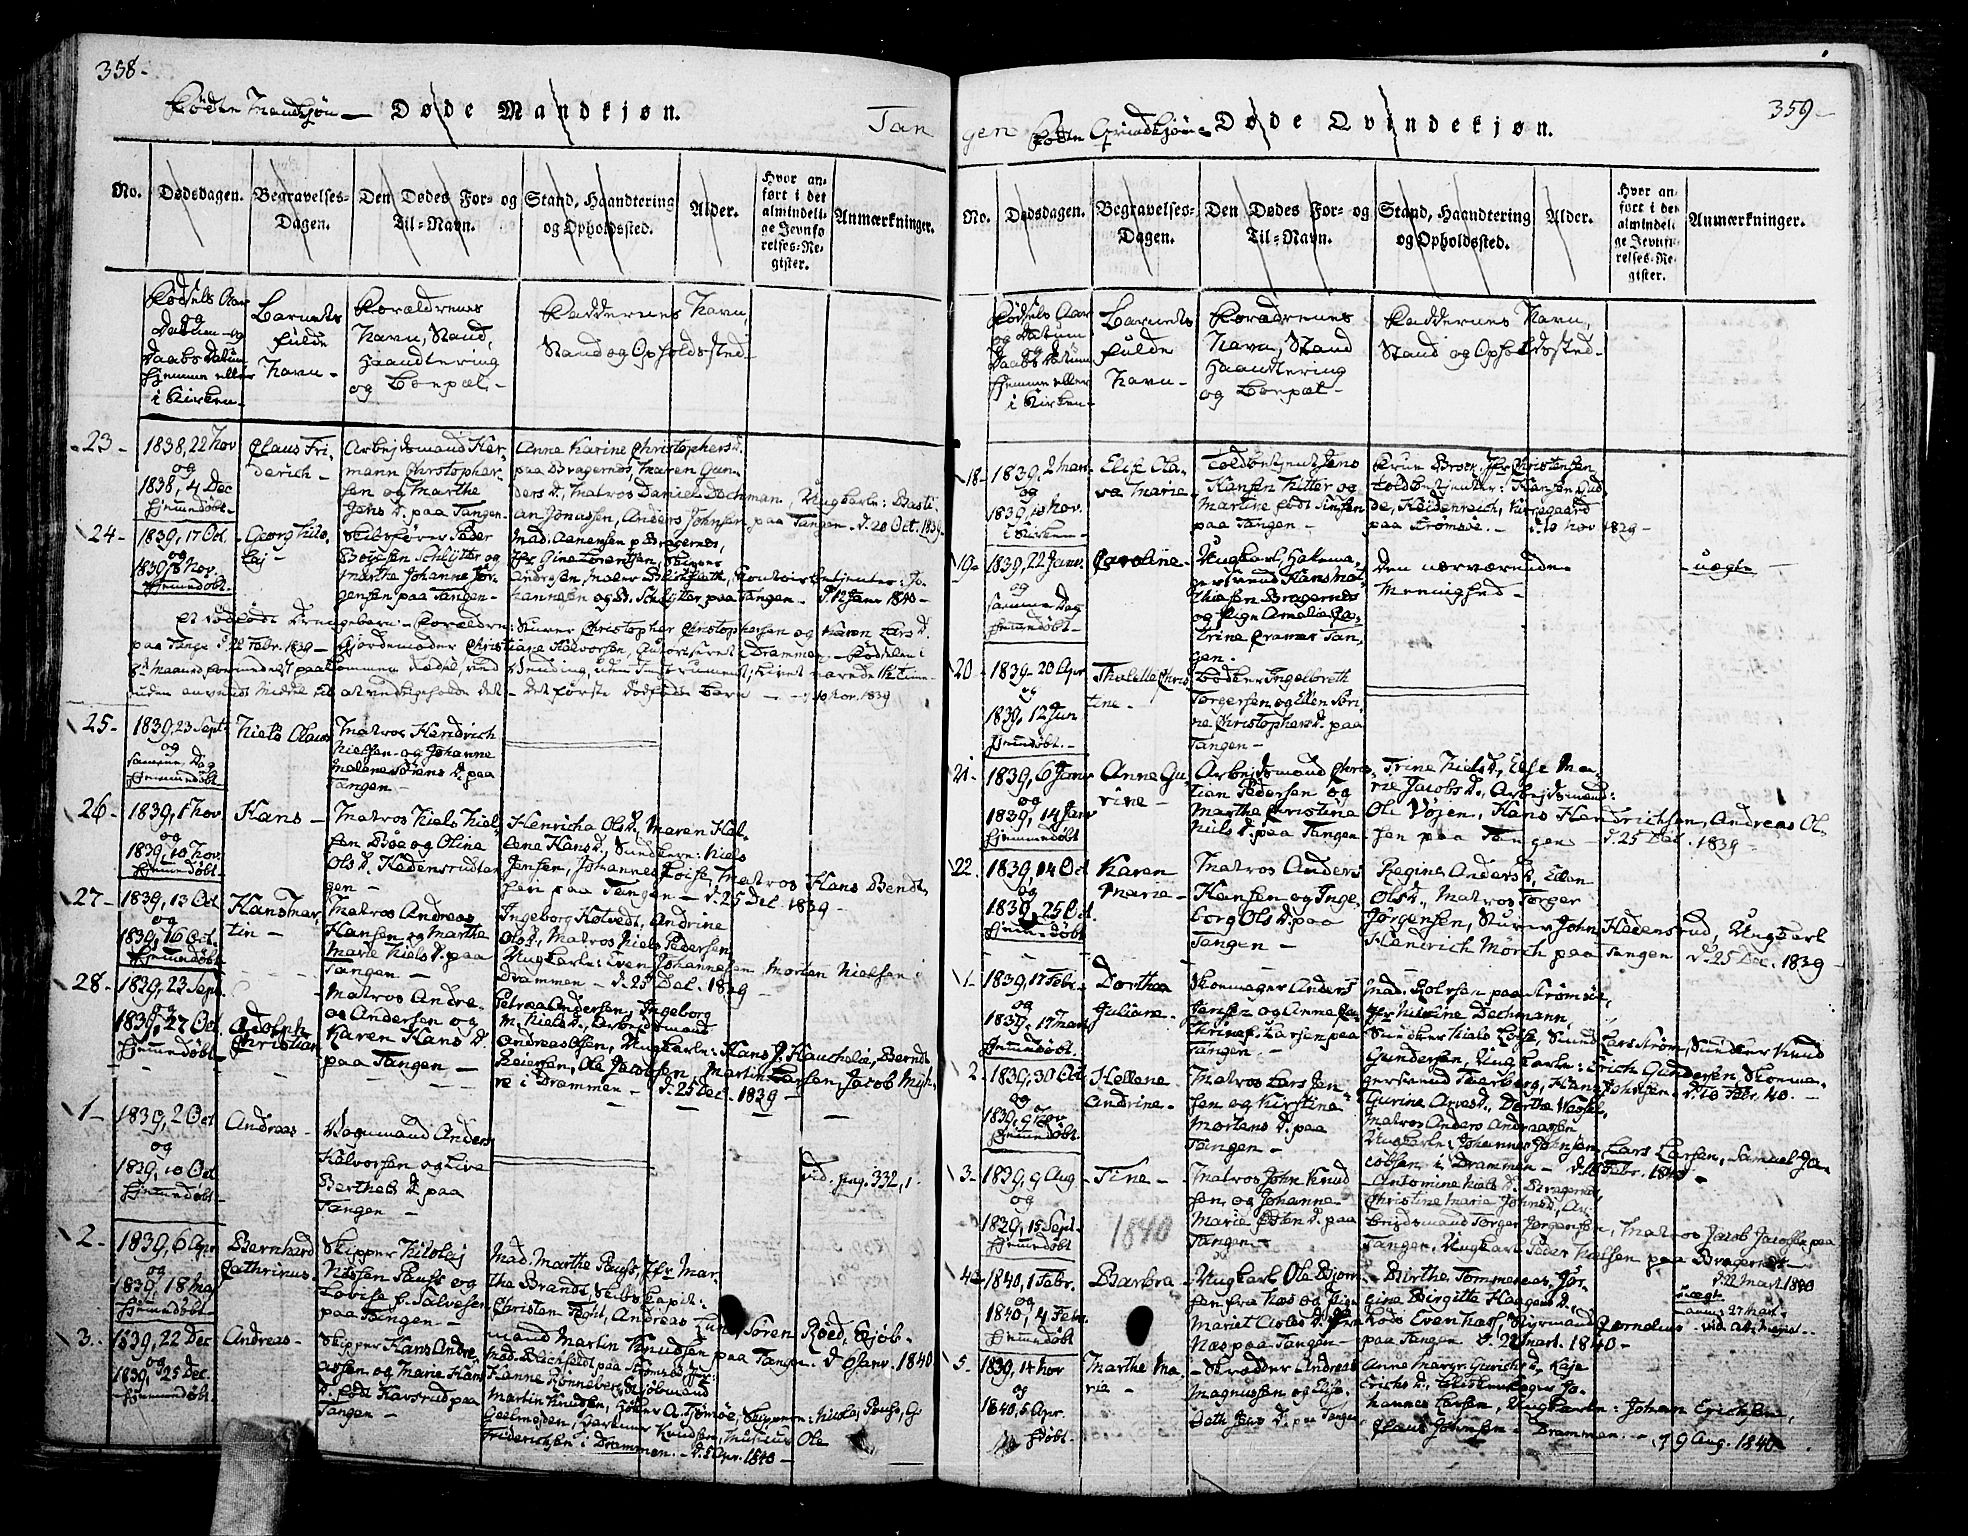 358-
Födte Mandkjøn - Døde Mandkjøn.
Tan
No. Dødsdagen. Begravelses-Dagen. Den Dødes For- og Til-Navn. Stand, Haandtering og Opholdssted. Alder. Hvor anført i det almindelige Jevnførelses-Register. Anmærkninger.
Födsels Aar og Datum og Daabs Datum hjemme eller i Kirken-
Barnets fulde Navn-
Forældrenes Navn, Stand, Haandtering og Boepæl-
Faddernes Navn, Stand og Opholdssted-
23- 1838, 22 Nov og 1838, 4 Dec hjemmedöbt-
Claus Friderich-
Arbejdsmand Hermann Christophersen og Marthe Jens D. paa Tangen-
Anne Karine Christophers D. paa Bragernes, Maren Gunders D., Matros Daniel Dechman, Ungkarle: Bastian Jonassen, Anders Johnsen paa Tangen. d. 20 Oct. 1839-
24- 1839, 17 Oct. og 1839, 8 Nov. hjemmedöbt-
Georg Nikolaj-
Skibsförer Peder Schlytter og Marthe Johanne Jörgensen paa Tangen-
Mad. Aanensen p Bragernes, Jfr Gine Lorentsen, Skipper Andresen, Maler Blikfeldt, Contoirbetjenter: Johannesen og B. Schlytter paa Tangen- d. 12 Janr 1840-
et dödfödt Drengebarn- Forældre: Sturer Christopher Christophersen og Karen Lars D.
paa Tange d. 22 Febr. 1839- Gjordemoder Christiane Halvorsen, Autoriseret i Drammen.- Födselen i
uden anvendt Middel til at vedligeholde det- Det förste dödfödte Barn - 10 Nov. 1839
25- 1839, 23 Sept og samme Dag hjemmedöbt
Niels Olaus
Matros Hendrich Nielsen og Johanne Malene Sörens D. paa Tangen-
26- 1839, 1 Nov og 1839, 10 Nov. hjemmedöbt-
Hans-
Matros Niels Nielsen Böe og Olina Ols D. Hedensrudtangen-
Henricha Ols D., Maren Helene Hans D., Sundkarle: Niels Jensen, Johannes Foise, Matros Hans Bendtsen paa Tangen- d. 25 Dec. 1839-
27- 1839, 13 Oct og 1839, 16 Oct. hjemmedöbt
Hans Martin-
Matros Andreas Hansen og Marthe Marie Niels D. paa Tangen-
Ingeborg Hotvedt, Andrine Ols D., Matros Niels Pedersen Ungkarle: Even Johannesen, Morten Nielsen i Drammen- d. 25 Dec. 1839-
28- 1839, 23 Sept. og 1839, 27 Oct hjemmedöbt-
Adolph Christian
Matros Andreas Andersen og Karen Hans D. paa Tangen-
Petrea Andersen, Ingeborg M. Niels D., Arbejdsmand Andreas Olsen, Ungkarle: Hans J. Hauchelie, Berndt Reiersen, Ole Jacobsen, Martin Larsen, Jacob Myhre i Drammen- d. 25 Dec. 1839-
1- 1839, 2 Oct og 1839, 10 Oct hjemmedöbt-
Andreas-
Vognmand Anders Halvorsen og Live Berthels D. paa Tangen-
vid. pag. 332, 1.
2- 1839, 6 Apr og 1839, 18 Maj hjemmedöbt-
Bernhard Cathrinus-
Skipper Nikolaj Nissen Pauss og Lovise f. Salvesen paa Tangen-
Mad. Marthe Pauss, Jfr Marthe Brandt, Skibscapit: Christen Fight, Andreas Lund, Sören Roed, Sjöbmand Martin Knudsen paa Tangen. d. 6 Janr. 1840
3- 1839, 22 Dec og 1839, 25 Dec. hjemmedöbt-
Andreas-
Skipper Hans Andreassen og Marie Hans D. födt Karsrud paa Tangen-
Mad. Blichfeldt paa Strömsöe, Jfr Hanne Rönneberg, Sjöbmand Martin Knudsen, Höker A. Tjömöe, Skippere: Nicolaj Pauss, G. Geelmejden, Verkmr Knudsen, Musicus Ole Friderichsen i Drammen.- d. 5 Apr. 1840-
359-
gen Födte Qvindkjön- Døde Qvindekjøn.
No. Dødsdagen. Begravelses-Dagen. Den Dødes For- og Til-Navn. Stand, Haandtering og Opholdssted. Alder. Hvor anført i det almindelige Jevnførelses-Register. Anmærkninger.
Födsels Aar og Datum og Daabs Datum hjemme eller i Kirken-
Barnets fulde Navn-
Forældrenes Navn, Stand Haandtering og Boepæl-
Faddernes Navn, Stand og Opholdssted-
18- 1839, 2 Mart og 1839, 10 Nov. i Kirken-
Elise Olava Marie-
Toldbetjent Jens Hansen Kitter og Martine födt Jensen paa Tangen-
Frue Brock, Jfr Christensen, Toldbetjenter: Hansen Gudde, Heidenreich, Kirregaard paa Strömsöe.- d. 10 Nov 1839-
19- 1839, 22 Janr. og samme Dag hjemmedöbt-
Caroline-
Ungkarl, Hattemagersvend Hans Mathiesen Bragernes og Pige Amalie Cathrine Cramer Tangen-
Den nærværende Menighed-
uægte-
20- 1839, 20 Apr og 1839, 12 Jun hjemmedöbt.-
Thalette Christine-
Bödker Ingelbreth Torgersen og Ellen Sörine Christophers D. paa Tangen-
21- 1839, 6 Janr og 1839, 14 Janr hjemmedöbt
Anne Gurine-
Arbejdsmand Christian Pedersen og Marthe Christine Niels D. paa Tangen-
Trine Niels D., Else Marie Jacobs D., Arbejdsmænd: Ole Vöjen, Hans Hendrichsen, Andreas Olsen paa Tangen- d. 25 Dec. 1839-
22- 1839, 14 Oct og 1839, 25 Oct. hjemmedöbt
Karen Marie-
Matros Anders Hansen og Ingeborg Ols D. paa Tangen-
Regine Anders D., Ellen Ols D., Matros Torger Jörgensen, Sturer John Hedensrud, Ungkarl Hendrich Mörch paa Tangen d. 25 Dec. 1839-
1- 1839, 17 Febr. og 1839, 17 Mart hjemmedöbt-
Dorthea Juliane-
Skomager Anders Jensen og Anne Cathrine f. Larsen paa Tangen-
Mad. Rolvsen paa Strömsöe, Jfr Nikoline Dechmann, Sundker Niels Foise, Sund. Lars Ström, Sundker Knud Gundersen, Ungkarle: Erich Gundersen, Skomagersvend Tverberg, Hans Johnsen. d. 10 Febr. 40.-
2- 1839, 30 Oct og 1839, 9 Nov hjemmedöbt
Hellene Andrine-
Matros Lars Jensen og Kirstine Mortens D. paa Tangen-
Gurine Arves D., Dorthe Wessel, Matros Anders Andreassen Ungkarle: Johannes Johnsen, Lars Larsen, Samuel Jacobsen i Drammen- d. 16 Febr. 1840-
3- 1839, 9 Aug og 1839, 15 Sept. hjemmedöbt
Tine-
1840
Matros John Knudsen og Johanne Marie Östen D. paa Tangen-
Antomine Niels D. Bragernes, Christine Marie Johns D., Arbeidsmand Torger Jörgensen, Matros Jacob Jacobsen paa Tangen, Ungkarl Peder Nielsen paa Bragernes- d. 22 Mart. 1840
4- 1840, 1 Febr. og 1840, 4 Febr. hjemmedöbt
Barbra-
Ungkarl Ole Björnsen fra Næs og Pige Mariet Asles D. fra Næs paa Tangen
Birthe Tommeraas, Jörgine Birgitte Haagens D., Lods Even Næs, Styrmand Cornelius paa Tangen d. 22 Mart. 1840-
uægte
anm. 27 Mart. vid. Att.
5- 1839, 14 Nov og 1840, 5 Apr. döbt.
Marthe Marie-
Skredder Andreas Magnussen og Elisabeth Jens D. paa Tangen
Anne Margr. Gurichs D., Kaje Erichs D., Johannes Larsen, Ungkarle: Johan Erichsen, Claus Johnsen- Drammen.- d. 9 Aug. 1840